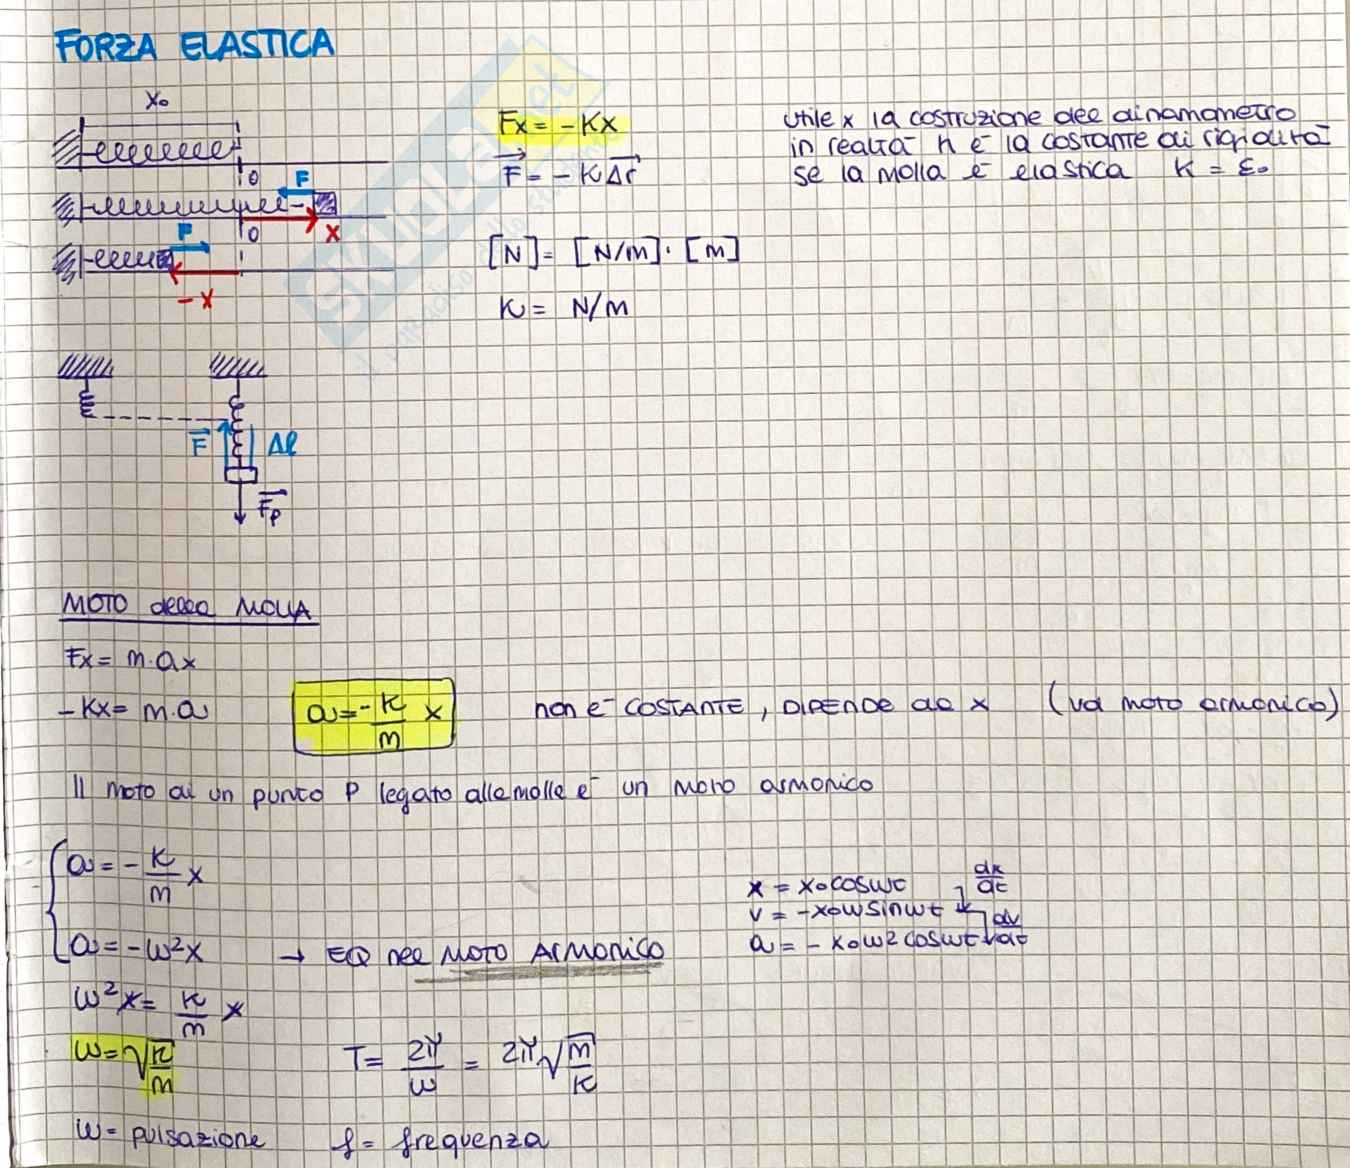 FORZA ELASTICA
x₀
Fx = -Kx
F = -KΔr
utile x la costruzione del dinamometro
in realtà K è la costante di rigidità
se la molla è elastica K = ε₀
0
F
0
x
F
-x
[N] = [N/m]·[m]
K = N/m
F
Δl
Fp
MOTO della MOLLA
Fx = m·ax
-Kx = m·a
a = -K/m x
non è COSTANTE, DIPENDE da x (vd moto armonico)
Il moto di un punto P legato alla molle è un moto armonico
a = -K/m x
a = -ω²x → EQ nel MOTO ARMONICO
x = x₀cosωt
dx/dt
v = -x₀ωsinωt
dv/dt
a = -x₀ω2cosωt
ω²x = K/m x
ω = √K/m
T = 2π/ω = 2π√m/K
ω = pulsazione f = frequenza
SKUOLA.net
il paradiso dello studente